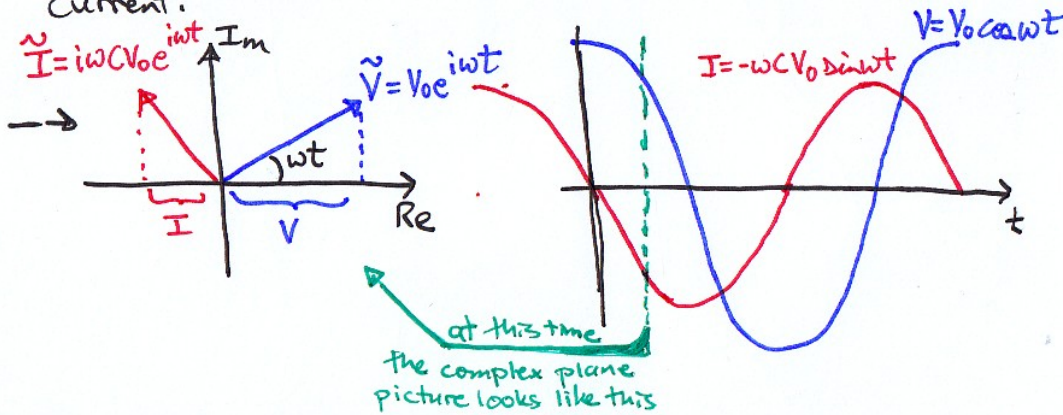 current.
Ĩ = iωCV₀e^{iωt}
Im
Ṽ = V₀e^{iωt}
ωt
I
V
Re
V = V₀ cos ωt
I = -ωCV₀ sin ωt
t
at this time
the complex plane
picture looks like this